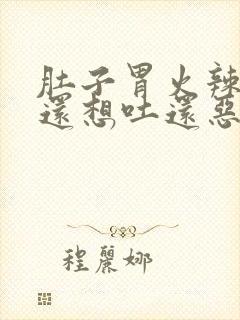 肚子胃火辣
還想吐還惡
程麗娜